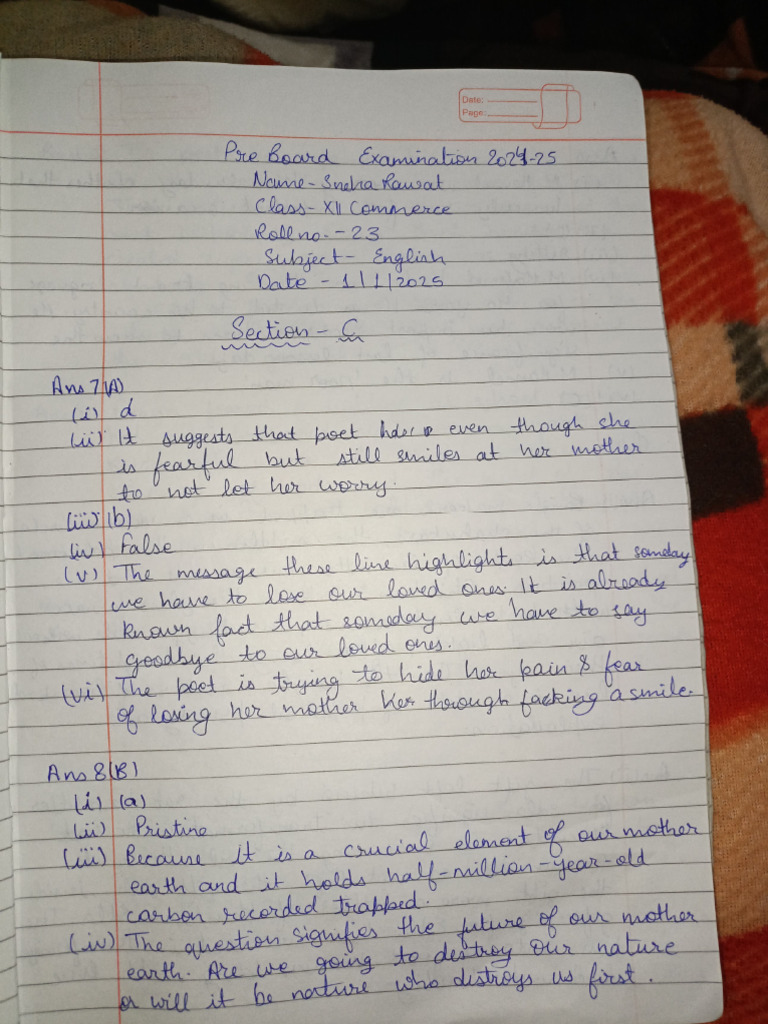 Date:
Page:
Pre Board Examination 2024-25
Name - Sneha Rawat
Class - XII Commerce
Roll no. - 23
Subject - English
Date - 1/1/2025
Section - C
Ans 7(A)
(i) d
(ii) It suggests that poet even though she
is fearful but still smiles at her mother
to not let her worry.
(iii) (b)
(iv) False
(v) The message these line highlights is that someday
we have to lose our loved ones. It is already
known fact that someday we have to say
goodbye to our loved ones.
(vi) The poet is trying to hide her pain & fear
of losing her mother through facking a smile.
Ans 8(B)
(i) (a)
(ii) Pristine
(iii) Because It is a crucial element of our mother
earth and it holds half-million-year-old
carbon recorded trapped.
(iv) The question signifies the future of our mother
earth. Are we going to destroy our nature
or will it be nature who destroys us first.